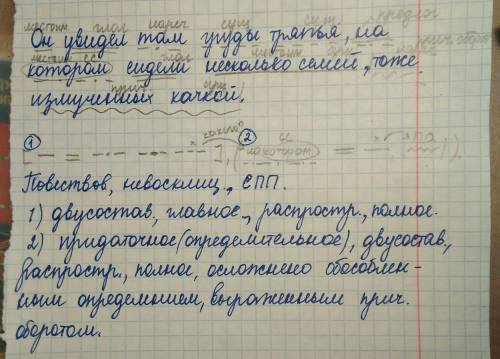 местоим глаг нареч сущ сущ предлог
Он увидел там груды тряпья, на
котором сидели несколько семей, тоже
измученных качкой.
① какого? ②
[— = –·–·– – – – x], (на котором = —
Повествов., невосклиц., СПП.
1) двусостав, главное, распростр., полное.
2) придаточное (определительное), двусостав,
распростр., полное, осложнено обособлен-
ным определением, выраженным прич.
оборотом.